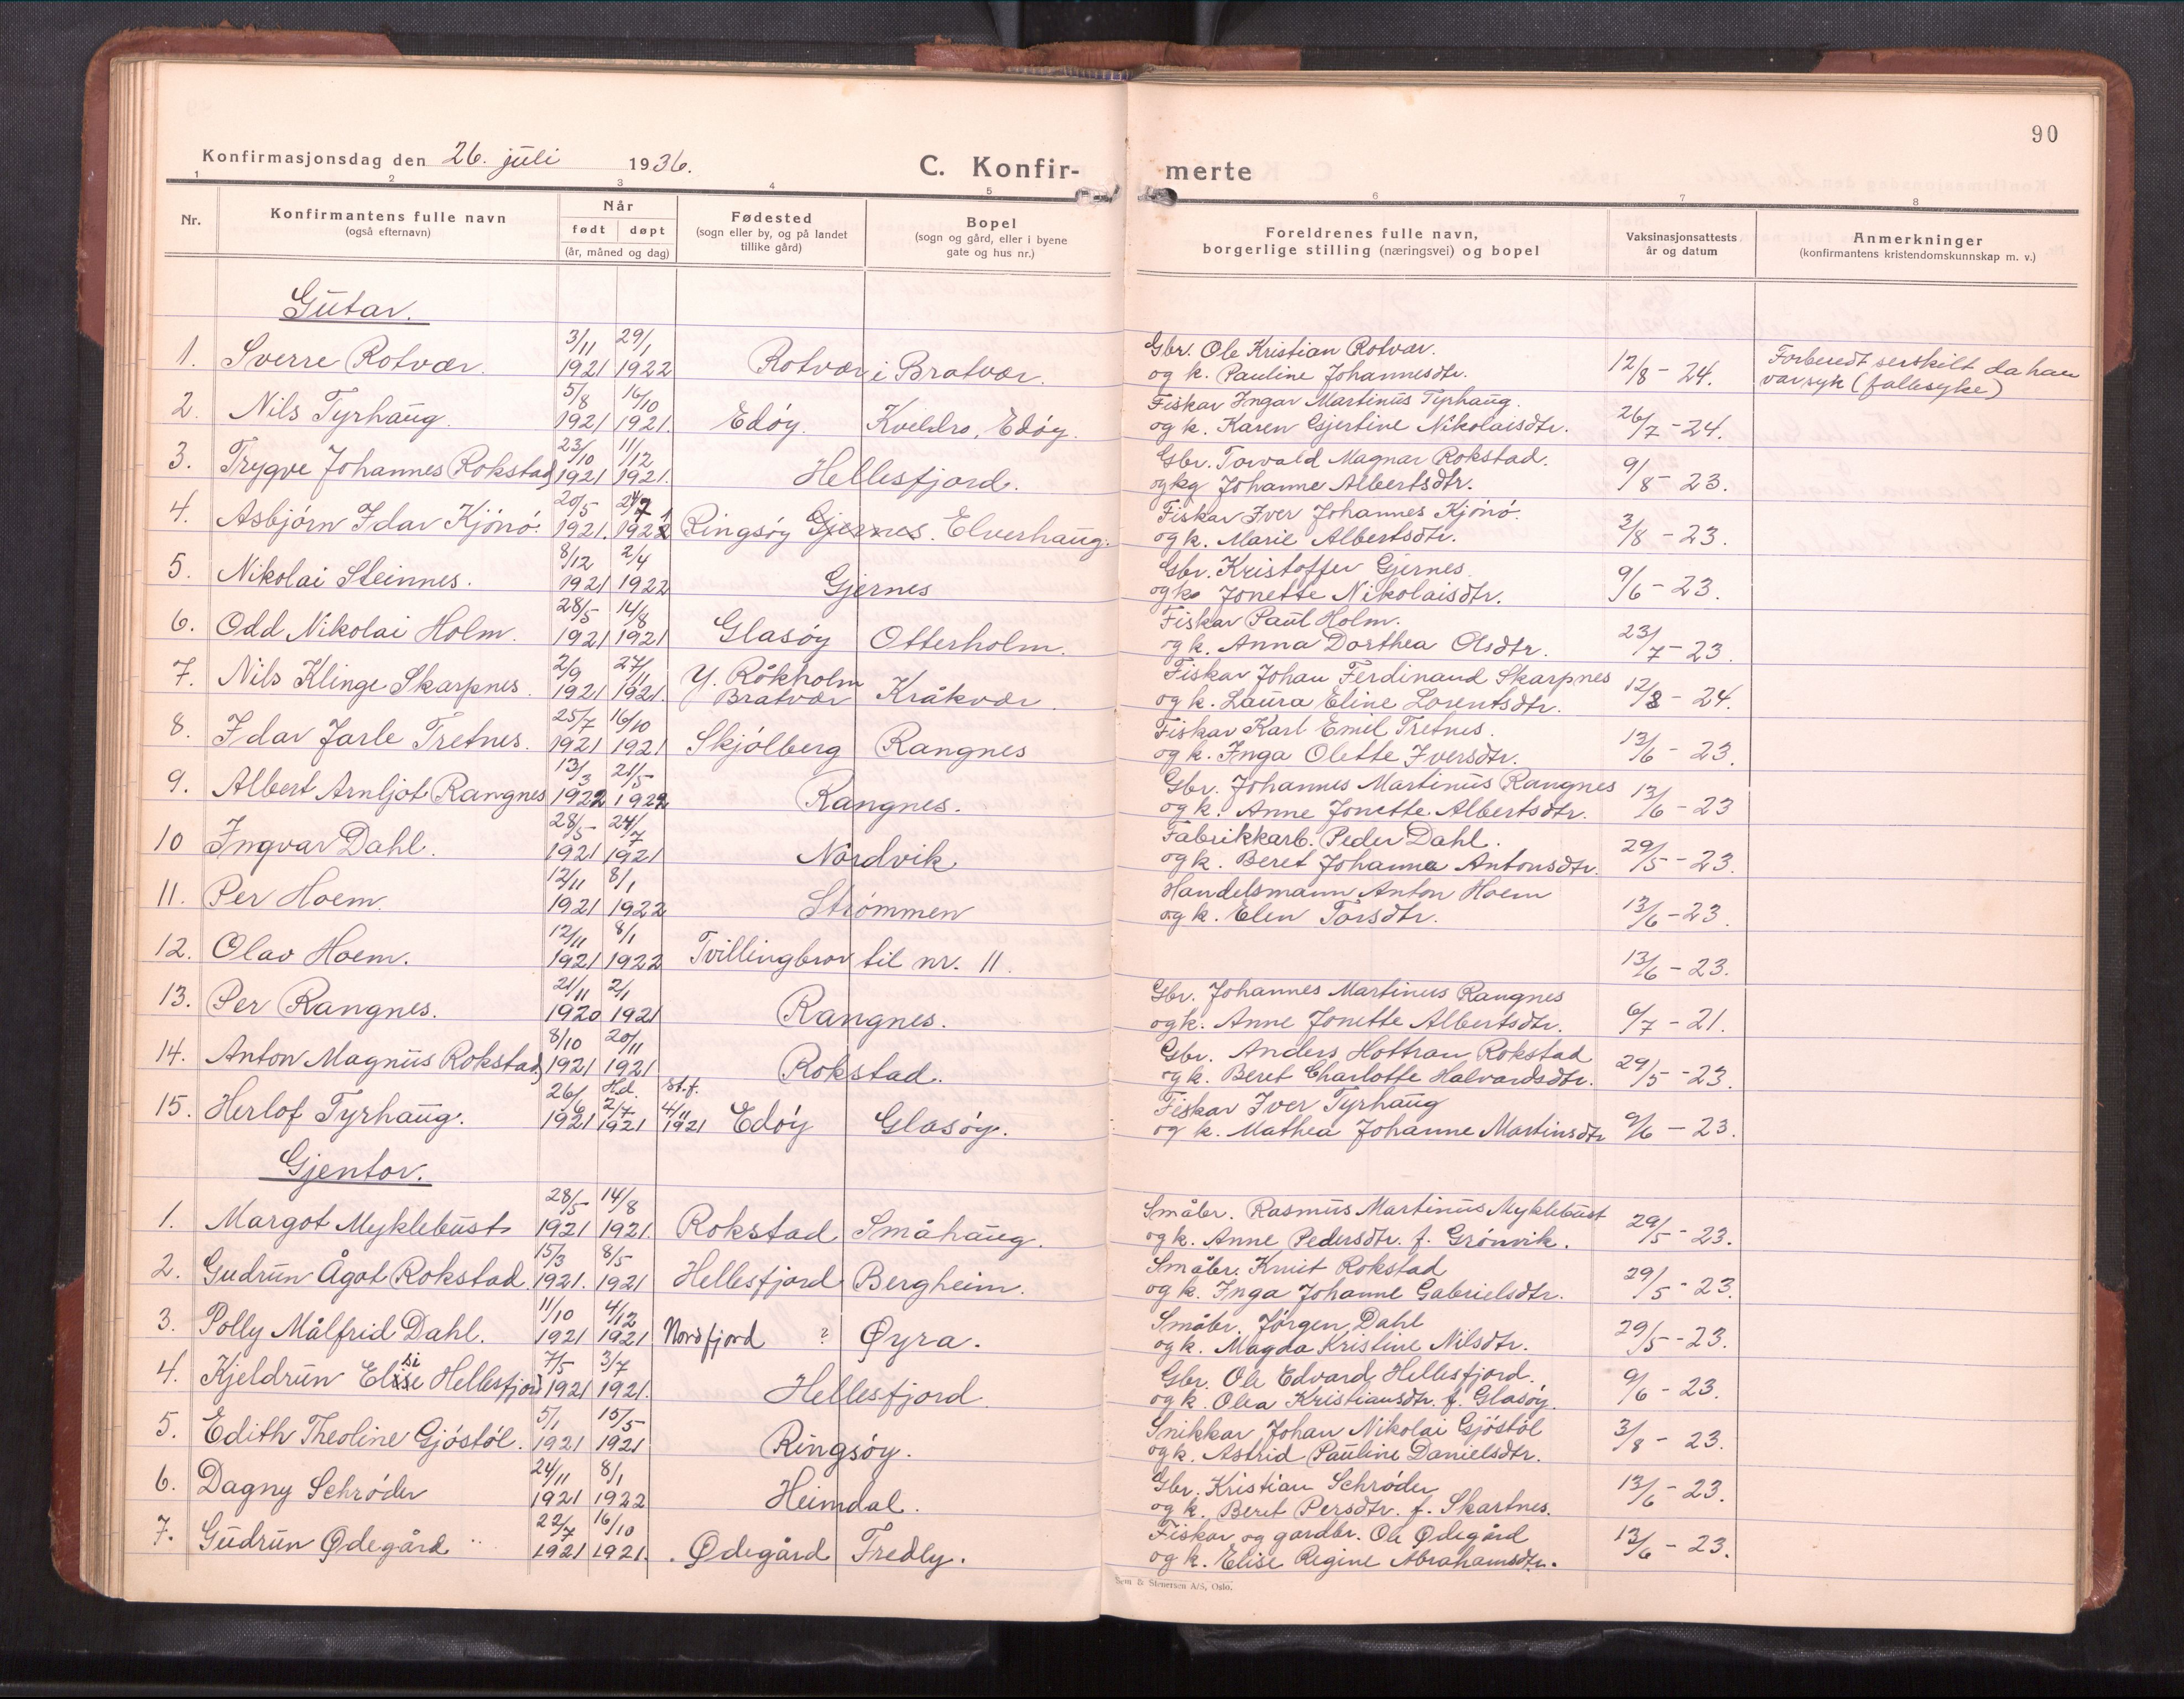 90
Konfirmasjonsdag den 26. juli 1936.
C. Konfir-
merte
1 2 3 4 5 6 7 8
Nr.
Konfirmantens fulle navn
(også efternavn)
Når
født døpt
(år, måned og dag)
Fødested
(sogn eller by, og på landet
tillike gård)
Bopel
(sogn og gård, eller i byene
gate og hus nr.)
Foreldrenes fulle navn,
borgerlige stilling (næringsvei) og bopel
Vaksinasjonsattests
år og datum
Anmerkninger
(konfirmantens kristendomskunnskap m. v.)
Gutar.
3/11 29/1 Gbr. Ole Kristian Rotvær.
1. Sverre Rotvær. 1921 1922 Rotvær i Bratvær. og k. Pauline Johannesdtr. 12/8 - 24. Forberedt serskilt da han
var syk (fallesyke)
5/8 16/10 Fiskar Ingar Martinus Tyrhaug.
2. Nils Tyrhaug. 1921 1921. Edøy. Kveldro, Edøy. og k. Karen Gjertine Nikolaisdtr. 26/7 - 24.
23/10 11/12 Gbr. Torvald Magnar Rokstad.
3. Trygve Johannes Rokstad 1921 1921. Hellesfjord. og kg Johanne Albertsdtr. 9/8 - 23.
20/5 24/7 Fiskar Iver Johannes Kjønø.
4. Asbjørn Idar Kjønø. 1921. 1921 Ringsøy Gjernes. Elverhaug. og k. Marie Albertsdtr. 3/8 - 23.
8/12 2/4 Gbr. Kristoffer Gjernes
5. Nikolai Steinnes. 1921 1922 Gjernes og k. Jonette Nikolaisdtr. 9/6 - 23.
28/5 14/8 Fiskar Paul Holm.
6. Odd Nikolai Holm. 1921 1921 Glasøy Otterholm. og k. Anna Dorthea Olsdtr. 23/7 - 23.
2/9 27/11 Y. Råkholm Fiskar Johan Ferdinand Skarpnes
7. Nils Klinge Skarpnes. 1921 1921. Bratvær Kråkvær. og k. Laura Eline Lorentsdtr. 12/8 - 24.
25/7 16/10 Fiskar Karl Emil Tretnes.
8. Idar Jarle Tretnes. 1921 1921 Skjølberg Rangnes og k. Inga Olette Iversdtr. 13/6 - 23.
13/3 21/5 Gbr. Johannes Martinus Rangnes
9. Albert Arnljot Rangnes 1922 1922 Rangnes. og k. Anne Jonette Albertsdtr. 13/6 - 23
28/5 24/7 Fabrikkarb. Peder Dahl.
10 Ingvar Dahl. 1921 1921 Nordvik og k. Beret Johanna Antonsdtr. 29/5 - 23.
12/11 8/1 Handelsmann Anton Hoem
11. Per Hoem. 1921 1922 Strømmen og k. Elen Torsdtr. 13/6 - 23.
12/11 8/1
12. Olav Hoem. 1921 1922 Tvillingbror til nr. 11. 13/6 - 23.
21/11 2/1 Gbr. Johannes Martinus Rangnes
13. Per Rangnes. 1920 1921 Rangnes. og k. Anne Jonette Albertsdtr. 6/7 - 21.
8/10 20/11 Gbr. Anders Hottran Rokstad
14. Anton Magnus Rokstad 1921 1921 Rokstad. og k. Beret Charlotte Halvardsdtr. 29/5 - 23.
26/6 H.d. 2/7 st.f. 4/11 Fiskar Iver Tyrhaug
15. Herlof Tyrhaug. 1921 1921 1921 Edøy Glasøy. og k. Mathea Johanne Martinsdtr 9/6 - 23.
Gjentor.
28/5 14/8 Småbr. Rasmus Martinus Myklebust
1. Margot Myklebust 1921 1921. Rokstad Småhaug. og k. Anne Pedersdtr. f. Grønvik. 29/5 - 23.
15/3 8/5 Småbr. Knut Rokstad
2. Gudrun Ågot Rokstad. 1921. 1921 Hellesfjord Bergheim. og k. Inga Johanne Gabrielsdtr. 29/5 - 23.
11/10 4/12 Småbr. Jørgen Dahl
3. Polly Målfrid Dahl. 1921 1921 Nordfjord ? Øyra. og k. Magda Kristine Nilsdtr. 29/5 - 23.
si 7/5 3/7 Gbr. Ole Edvard Hellesfjord.
4. Kjeldrun Elise Hellesfjord 1921 1921. Hellesfjord. og k. Olea Kristiansdtr. f. Glasøy. 9/6 - 23.
5/1 15/5 Snikkar Johan Nikolai Gjøstøl
5. Edith Theoline Gjøstøl. 1921 1921 Ringsøy. og k. Astrid Pauline Danielsdtr. 3/8 - 23.
24/11 8/1 Gbr. Kristian Schrøder
6. Dagny Schrøder 1921 1922 Heimdal. og k. Beret Persdtr. f. Skartnes. 13/6 - 23.
22/7 16/10 Fiskar og gardbr. Ole Ødegård
7. Gudrun Ødegård 1921 1921. Ødegård Fredly. og k. Elise Regine Abrahamsdtr. 13/6 - 23.
Sem & Stenersen A/S, Oslo.